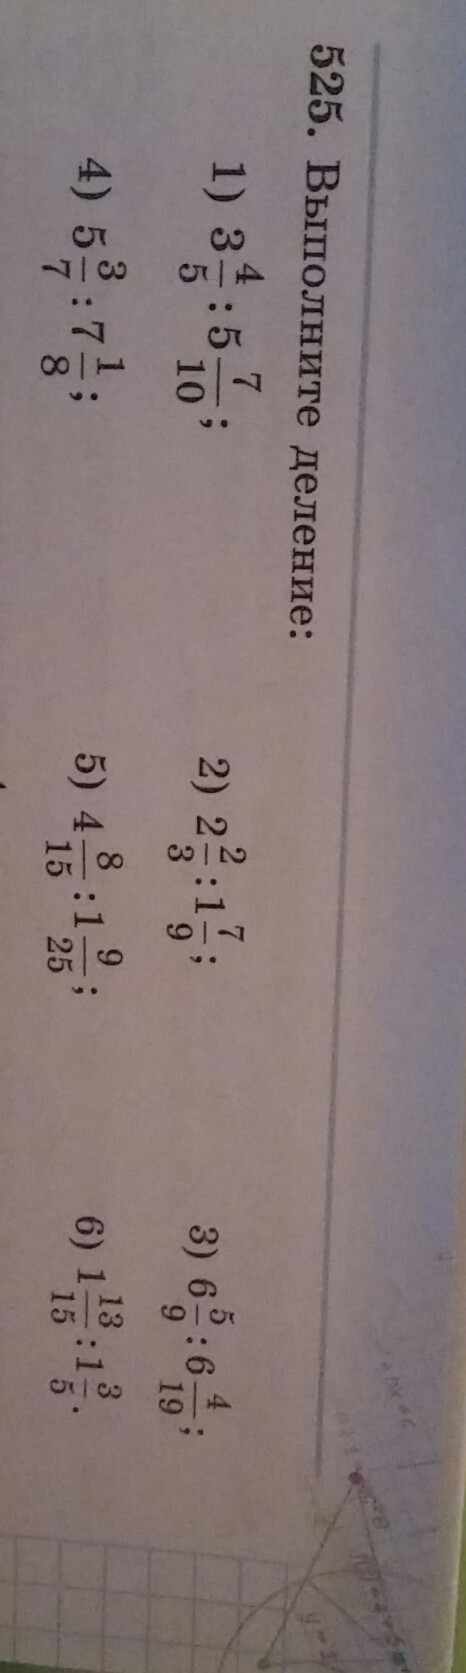 525. Выполните деление:
1) 3 4/5 : 5 7/10; 2) 2 2/3 : 1 7/9; 3) 6 5/9 : 6 4/19;
4) 5 3/7 : 7 1/8; 5) 4 8/15 : 1 9/25; 6) 1 13/15 : 1 3/5.